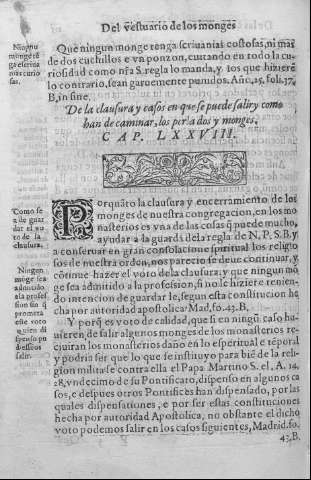 Del vestuario de los monges
Ningun
monge tē
ga escriua
nias curio
sas.
Que ningun monge tenga scriuanias costosas, ni mas
de dos cuchillos e vn ponzon, cuitando en todo la cu
riosidad como nr̄a S. regla lo manda, y los que hizierē
lo contrario, sean garuemente punidos. Año, 25, foli. 37,
B, in fine.
De la clausura y casos en que se puede salir y como
han de caminar, los perlados y monges,
CAP. LXXVIII.
Como se
ha de guar
dar el vo
to de la
clausura.
Ningun
mōge sea
admitido
a la profes
sion sin q̄
prometa
este voto
quien di
spenso pu
diessen
salir.
Porquāto la clausura y encerramiento de los
monges de nuestra congregacion, en los mo
nasterios es vna de las cosas q̄ puede mucho,
ayudar a la guarda de la regla de N. P. S. B. y
a conseruar en gran consolacione spiritual los religio
sos de nuestra ordē, nos parecio se deue continuar, y
cōtinue hazer el voto de la clausura: y que ningun mō
ge sea admitido a la profession, si no le hiziere renien
do intencion de guardar le, segun esta constitucion he
cha por autoridad apostolica Mad, fo. 43. B.
Y porq̄ es voto de calidad, que si en ningū caso hu
uieren, de salir algunos monges de los monasterios re
ciuiran los monasterios daño en lo espiritual e tēporal
y podria ser que lo que se instituyo para biē de la reli
gion militasse contra ella el Papa Martino S. el, A. 14.
28, vndecimo de su Pontificato, dispenso en algunos ca
sos, e despues otros Pontifices han dispensado, por las
quales dispensationes, e por ser estas constituciones
hecha por autoridad Apostolica, no obstante el dicho
voto podemos salir en los casos siguientes, Madrid. fo.
43, B.